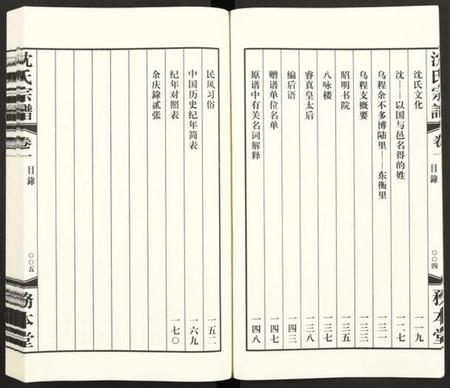 沈氏宗譜
卷一
目錄
〇〇四
務本堂
沈氏文化 一一九
沈——以国与邑名得的姓 一二七
乌程余不乡博陆里——东衡里 一三一
乌程支概要 一三三
昭明书院 一三五
八咏楼 一三八
睿真皇太后 一三九
编后语 一四三
赠谱单位名单 一四七
原谱中有关名词解释 一四八
民风习俗 一五二
中国历史纪年简表 一六九
纪年对照表 一七〇
余庆錄贰张
沈氏宗譜
卷一
目錄
〇〇五
務本堂